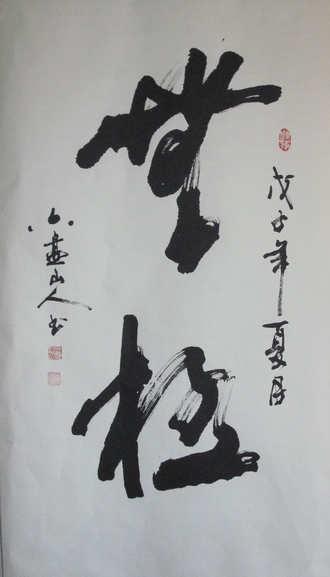 戊子年夏月
無極
山人书